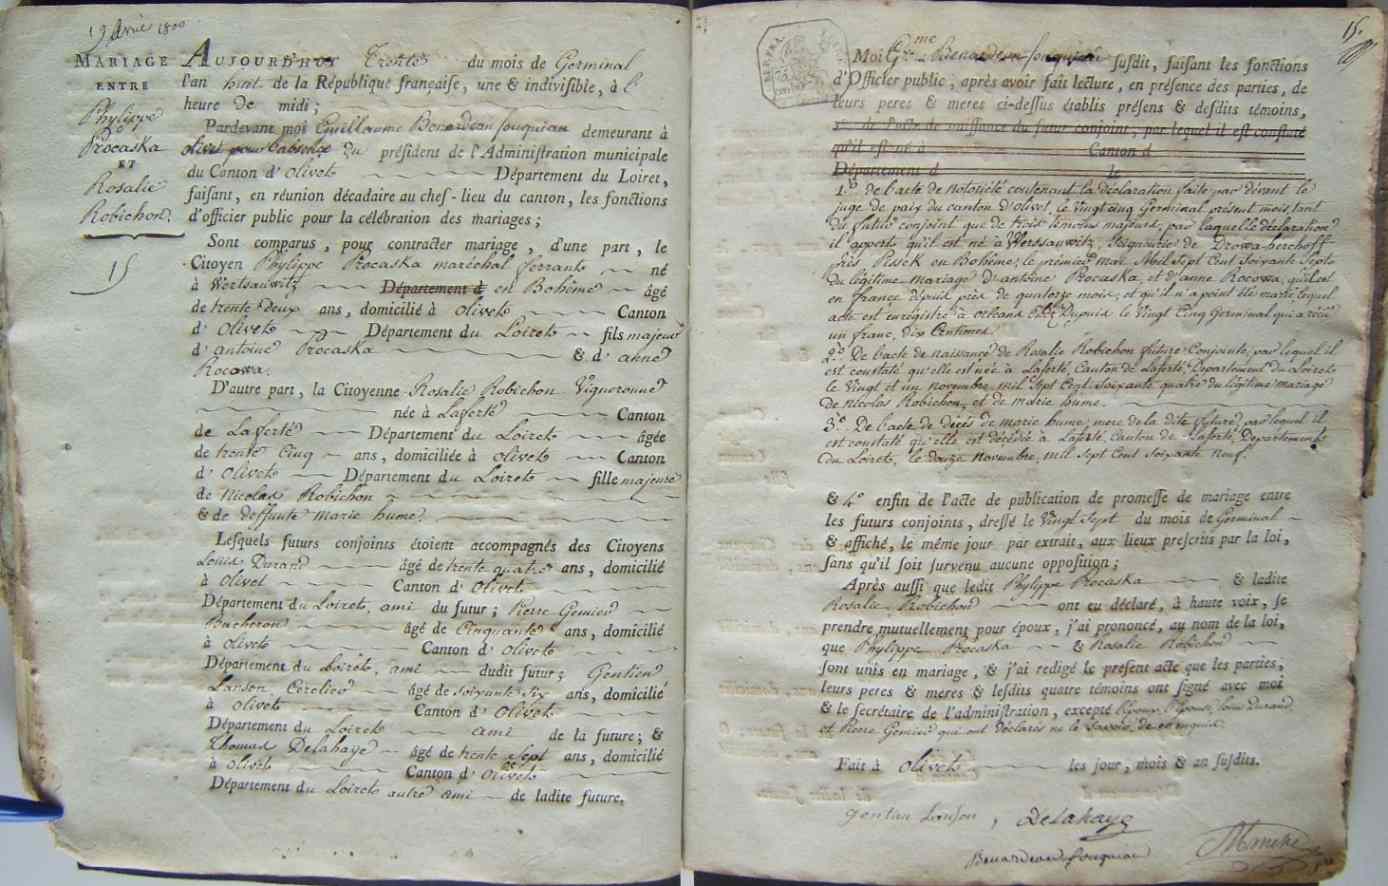 19 avril 1800
MARIAGE
ENTRE
Phylippe
Procaska
ET
Rosalie
Robichon.
15
AUJOURD'HUI Trente du mois de Germinal
l'an huit de la République françaiſe, une & indiviſible, à l'
heure de midi;
Pardevant moi Guillaume Benardeau fouquiau demeurant à
olivet pour l'absence du préſident de l'Adminiſtration municipale
du Canton d'olivet Département du Loiret,
faiſant, en réunion décadaire au chef-lieu du canton, les fonctions
d'officier public pour la célébration des mariages;
Sont comparus, pour contracter mariage, d'une part, le
Citoyen Phylippe Procaska maréchal ferrant né
à Wertsauwitz Département d en Bohême âgé
de trente deux ans, domicilié à olivet Canton
d'Olivet Département du Loiret fils majeur
d'antoine Procaska & d'anne
Rocowa.
D'autre part, la Citoyenne Rosalie Robichon Vigneronne
née à Laferté Canton
de Laferté Département du Loiret âgée
de trente Cinq ans, domiciliée à olivet Canton
d'Olivet Département du Loiret fille majeure
de Nicolas Robichon
& de deffunte marie hume.
Leſquels futurs conjoints étoient accompagnés des Citoyens
Louis Durand âgé de trente quatre ans, domicilié
à olivet Canton d'Olivet
Département du Loiret, ami du futur; Pierre Gemier
Bucheron âgé de Cinquante ans, domicilié
à olivet Canton d'olivet
Département du Loiret, ami dudit futur; Gentien
Lanson, Cerclier âgé de soixante six ans, domicilié
à olivet Canton d'Olivet
Département du Loiret ami de la future; &
Thomas Delahaye âgé de trente sept ans, domicilié
à olivet Canton d'Olivet
Département du Loiret autre ami de ladite future.
15.
Moi Gme Benardeau fouquiau ſuſdit, faiſant les fonctions
d'Officier public, après avoir fait lecture, en préſence des parties, de
leurs peres & meres ci-deſſus établis préſens & deſdits témoins,
1° de l'acte de naiſſance du futur conjoint, par lequel il eſt conſtaté
qu'il eſt né à Canton d
Département d le
1° de l'acte de notoriété contenant la déclaration faite par devant le
juge de paix du canton d'olivet, le vingt cinq Germinal présent mois, tant
du futur conjoint que de trois témoins majeurs, par laquelle déclaration
il apperts qu'il est né à Werssauwitz, Seigneurie de Drowa-berchoff
près Pissek en Bohême, le premier mai Mil Sept Cent Soixante Sept
du légitime mariage d'antoine Procaska, et d'anne Rocowa, qu'il est
en france depuis près de quatorze mois, et qu'il n'a point été marié lequel
acte est enregistré à orléans par Dupuis le Vingt Cinq Germinal qui a reçu
un franc, dix Centimes.
2° De l'acte de naissance de Rosalie Robichon future Conjointe, par lequel il
est constaté qu'elle est née à Laferté, Canton de Laferté, Département du Loiret
le Vingt et un novembre, mil Sept Cent Soixante quatre du légitime mariage
de nicolas Robichon, et de marie hume.
3° De l'acte de décès de marie hume, mere de la dite future, par lequel il
est constaté qu'elle est décédée à Laferté, Canton de Laferté, Département
du Loiret, le douze novembre, mil Sept Cent Soixante neuf.
& 4° enfin de l'acte de publication de promeſſe de mariage entre
les futurs conjoints, dreſſé le Vingt Sept du mois de Germinal
& affiché, le même jour par extrait, aux lieux preſcrits par la loi,
ſans qu'il ſoit ſurvenu aucune oppoſition;
Après auſſi que ledit Phylippe Procaska & ladite
Rosalie Robichon ont eu déclaré, à haute voix, ſe
prendre mutuellement pour époux, j'ai prononcé, au nom de la loi,
que Phylippe Procaska & Rosalie Robichon
ſont unis en mariage, & j'ai redigé le préſent acte que les parties,
leurs peres & meres & leſdits quatre témoins ont ſigné avec moi
& le ſecrétaire de l'adminiſtration, excepté l'époux, l'épouse, louis Durand
et Pierre Gemier qui ont déclarés ne le Savoir de ce enquis.
Fait à olivet les jour, mois & an ſuſdits.
gentien Lanson, Delahaye
Benardeau fouquiau